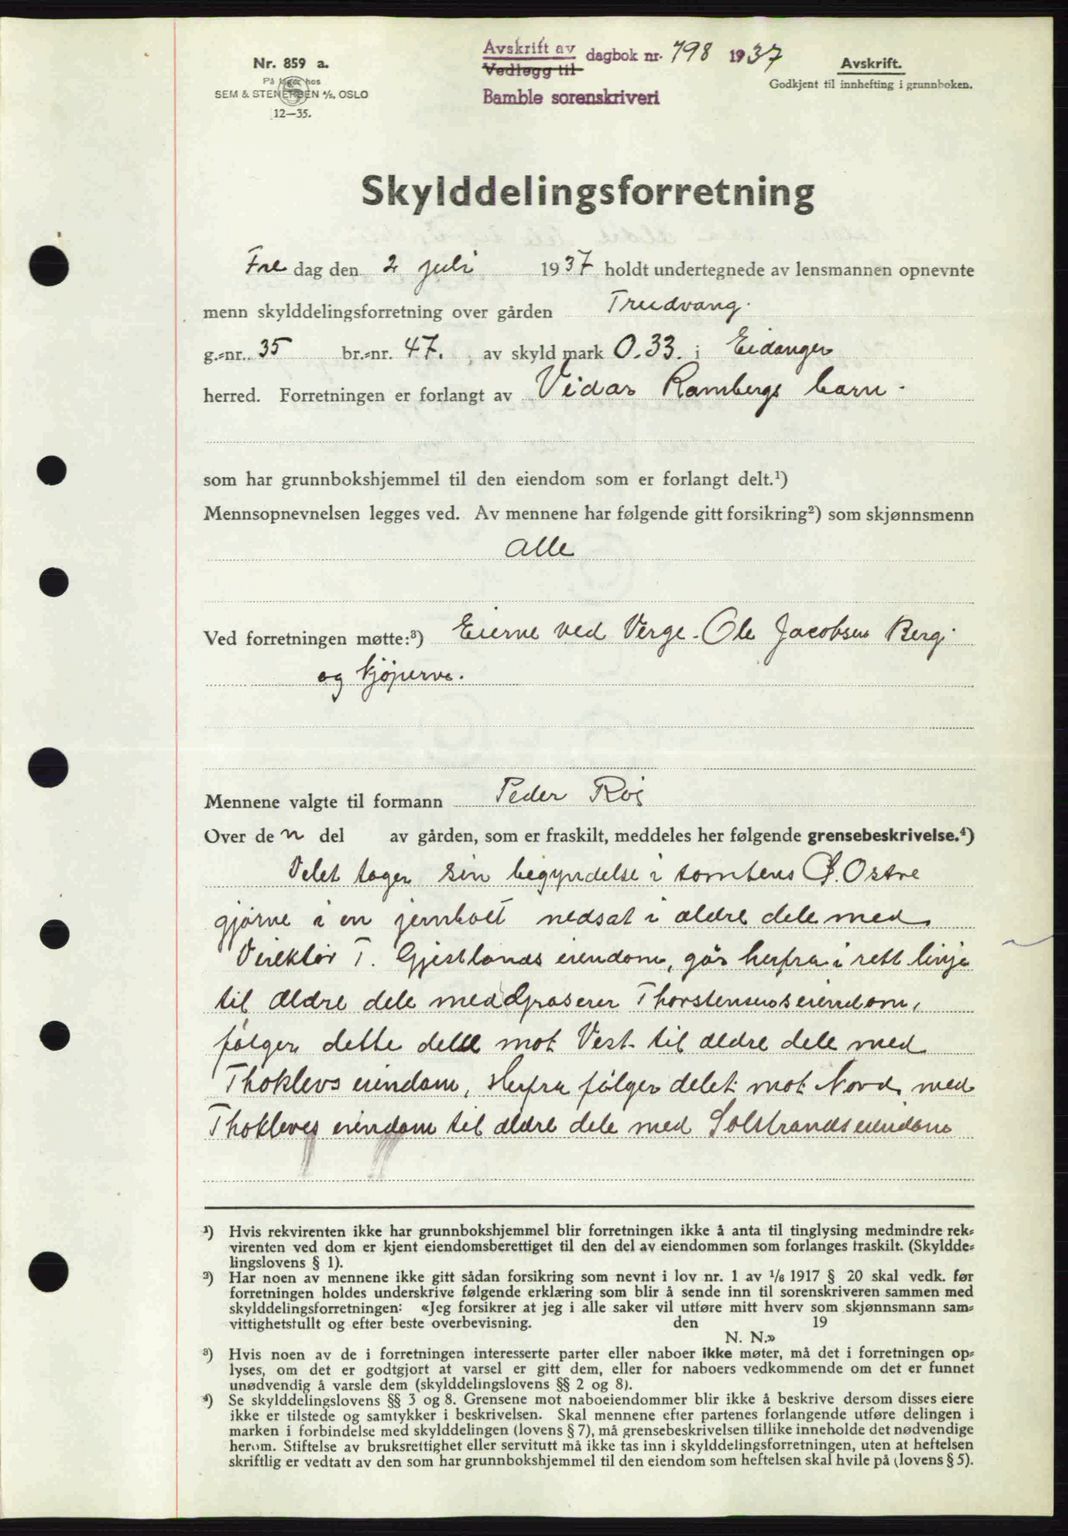 Nr. 859 a.
På lager hos
SEM & STENERSEN A/S, OSLO
12—35.
Avskrift av
Vedlegg til
dagbok nr. 798 1937
Bamble sorenskriveri
Avskrift.
Godkjent til innhefting i grunnboken.
Skylddelingsforretning
Fre dag den 2 juli 1937 holdt undertegnede av lensmannen opnevnte
menn skylddelingsforretning over gården Trudvang.
g.-nr. 35 br.-nr. 47. av skyld mark 0.33. i Eidanger
herred. Forretningen er forlangt av Vidar Rambergs barn.
som har grunnbokshjemmel til den eiendom som er forlangt delt.¹)
Mennsopnevnelsen legges ved. Av mennene har følgende gitt forsikring²) som skjønnsmenn
Alle
Ved forretningen møtte:³) Eierne ved Verge. Ole Jacobsen Berg.
og kjøperne.
Mennene valgte til formann Peder Roj
Over de n del av gården, som er fraskilt, meddeles her følgende grensebeskrivelse.⁴)
Delet tager sin begyndelse i tomtens Ø. Østre
gjørne i en jernbolt nedsat i ældre dele med
Direktør T. Gjestlands eiendom, går herfra i rett linje
til ældre dele med Thorstensens eiendom,
følger dette dele mot Vest til ældre dele med
Thoklevs eiendom, Herfra følger delet mot Nord med
Thoklevs eiendom til ældre dele med Solstrands eiendom
¹) Hvis rekvirenten ikke har grunnbokshjemmel blir forretningen ikke å anta til tinglysing medmindre rek-
virenten ved dom er kjent eiendomsberettiget til den del av eiendommen som forlanges fraskilt. (Skyldde-
lingslovens § 1).
²) Har noen av mennene ikke gitt sådan forsikring som nevnt i lov nr. 1 av 1/6 1917 § 20 skal vedk. før
forretningen holdes underskrive følgende erklæring som blir å sende inn til sorenskriveren sammen med
skylddelingsforretningen: «Jeg forsikrer at jeg i alle saker vil utføre mitt hverv som skjønnsmann sam-
vittighetsfullt og efter beste overbevisning. den 19
N. N.»
³) Hvis noen av de i forretningen interesserte parter eller naboer ikke møter, må det i forretningen op-
lyses, om det er godtgjort at varsel er gitt dem, eller for naboers vedkommende om det er funnet
unødvendig å varsle dem (skylddelingslovens §§ 2 og 8).
⁴) Se skylddelingslovens §§ 3 og 8. Grensene mot naboeiendommer blir ikke å beskrive dersom disses eiere
ikke er tilstede og samtykker i beskrivelsen. Skal mennene efter partenes forlangende utføre delingen i
marken i forbindelse med skylddelingen (lovens § 7), må grensebeskrivelsen tillike inneholde det nødvendige
herom. Stiftelse av bruksrettighet eller servitutt må ikke tas inn i skylddelingsforretningen, uten at heftelsen
skriftlig er vedtatt av den som har grunnbokshjemmel til den eiendom som heftelsen skal hvile på (lovens § 5).